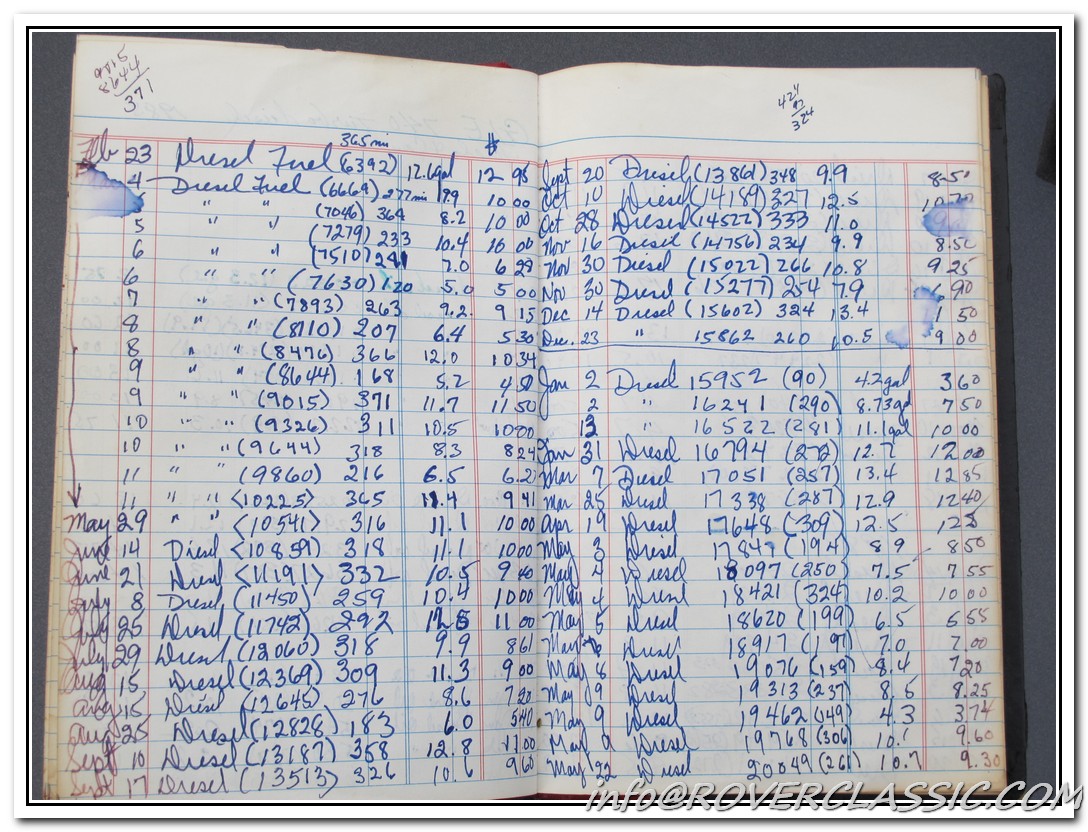 9015
8644
371
365 mi
$
Feb 23 Diesel Fuel (6392) 12.6gal 12 95
4 Diesel Fuel (6669) 277mi 7.9 10 00
" " (7046) 364 8.2 10 00
5 (7279) 233 10.4 10 00
6 " " (7510) 241 7.0 6 29
6 " " (7630) 120 5.0 5 00
7 " " (7893) 263 9.2 9 15
8 " " (8110) 207 6.4 5.30
8 " " (8476) 366 12.0 10.34
9 " " (8644) 168 5.2 4 50
9 " " (9015) 371 11.7 11 50
10 " " (9326) 311 10.5 10 00
10 " " (9644) 318 8.3 8 24
11 " " (9860) 216 6.5 6.2
11 " " (10225) 365 11.4 9 41
May 29 " " (10541) 316 11.1 10 00
June 14 Diesel (10859) 318 11.1 10 00
June 21 Diesel (11191) 332 10.5 9 40
July 8 Diesel (11450) 259 10.4 10 00
July 25 Diesel (11742) 292 12.5 11 00
July 29 Diesel (12060) 318 9.9 8 61
Aug 15 Diesel (12369) 309 11.3 9 00
Aug 15 Diesel (12645) 276 8.6 7 20
Aug 25 Diesel (12828) 183 6.0 5 40
Sept 10 Diesel (13187) 358 12.8 11.00
Sept 17 Diesel (13513) 326 10.6 9 60
424
92
324
Sept 20 Diesel (13861) 348 9.9 8.50
Oct 10 Diesel (14189) 327 12.5
Oct 28 Diesel (14522) 333 11.0
Nov 16 Diesel (14756) 234 9.9 8.50
Nov 30 Diesel (15022) 266 10.8 9.25
Nov 30 Diesel (15277) 254 7.9 6.90
Dec 14 Diesel (15602) 324 13.4 1 50
Dec. 23 " 15862 260 10.5 9 00
Jan 2 Diesel 15952 (90) 4.2gal 3 60
2 " 16241 (290) 8.73gal 7 50
13 " 16522 (281) 11.1gal 10 00
Jan 31 Diesel 16794 (272) 12.7 12 00
Mar 7 Diesel 17051 (257) 13.4 12 85
Mar 25 Diesel 17338 (287) 12.9 12 40
Apr 19 Diesel 17648 (309) 12.5
May 3 Diesel 17847 (194) 8 9 8 50
May 4 Diesel 18097 (250) 7.5 7.55
May 4 Diesel 18421 (324) 10.2 10 00
May 5 Diesel 18620 (199) 6.5 6.55
May 6 Diesel 18917 (197) 7.0 7.00
May 8 Diesel 19076 (159) 8.4 7.20
May 9 Diesel 19313 (237) 8.5 8.25
May 9 Diesel 19462 (149) 4.3 3.74
May 9 Diesel 19768 (306) 10.1 9.60
May 22 Diesel 20049 (261) 10.7 9.30
info@ROVERCLASSIC.COM